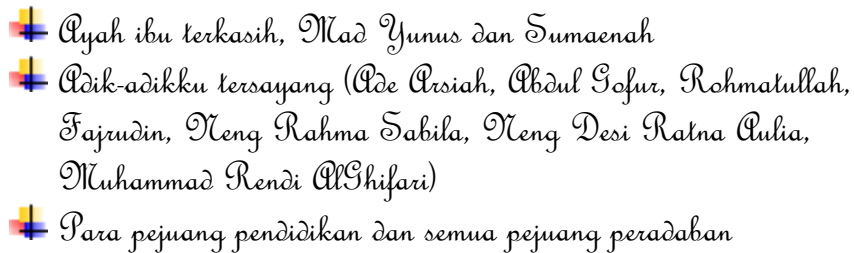 Ayah ibu terkasih, Mad Yunus dan Sumaenah
Adik-adikku tersayang (Ade Arsiah, Abdul Gofur, Rohmatullah,
Fajrudin, Neng Rahma Sabila, Neng Desi Ratna Aulia,
Muhammad Rendi AlGhifari)
Para pejuang pendidikan dan semua pejuang peradaban